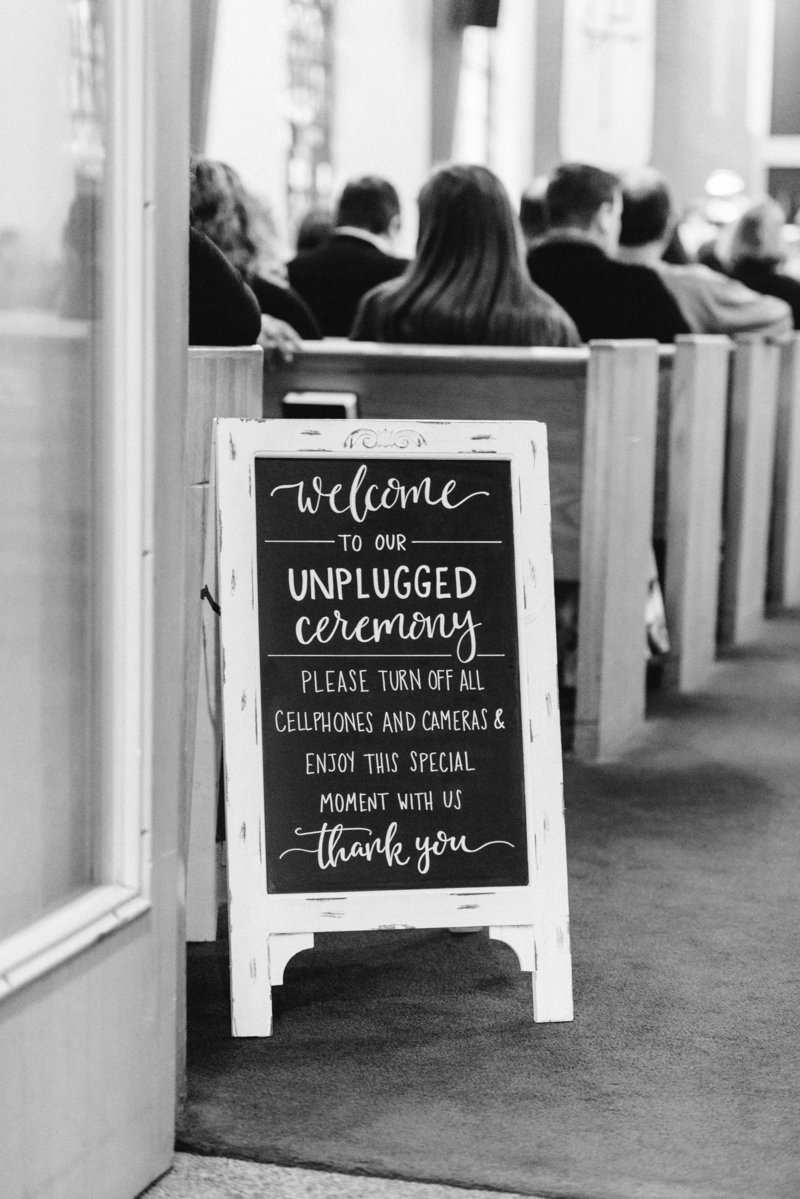 welcome
TO OUR
UNPLUGGED
ceremony
PLEASE TURN OFF ALL
CELLPHONES AND CAMERAS &
ENJOY THIS SPECIAL
MOMENT WITH US
thank you